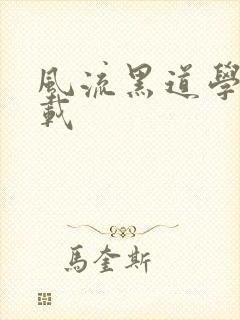 風流黑道學
載
馬奎斯